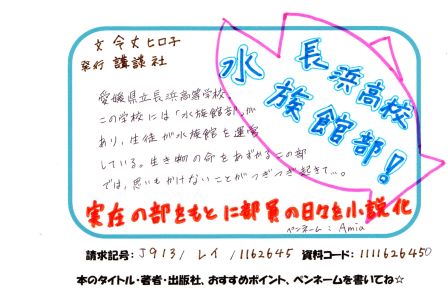 文 令丈ヒロ子
発行 講談社
長浜高校
水族館部!
愛媛県立長浜高等学校。
この学校には「水族館部」が
あり、生徒が水族館を運営
している。生き物の命をあずかるこの部
では、思いもかけないことがつぎつぎ起きて…。
実在の部をもとに部員の日々を小説化
ペンネーム：Amia
請求記号：J913/レイ/1162645 資料コード：1111626450
本のタイトル・著者・出版社、おすすめポイント、ペンネームを書いてね☆